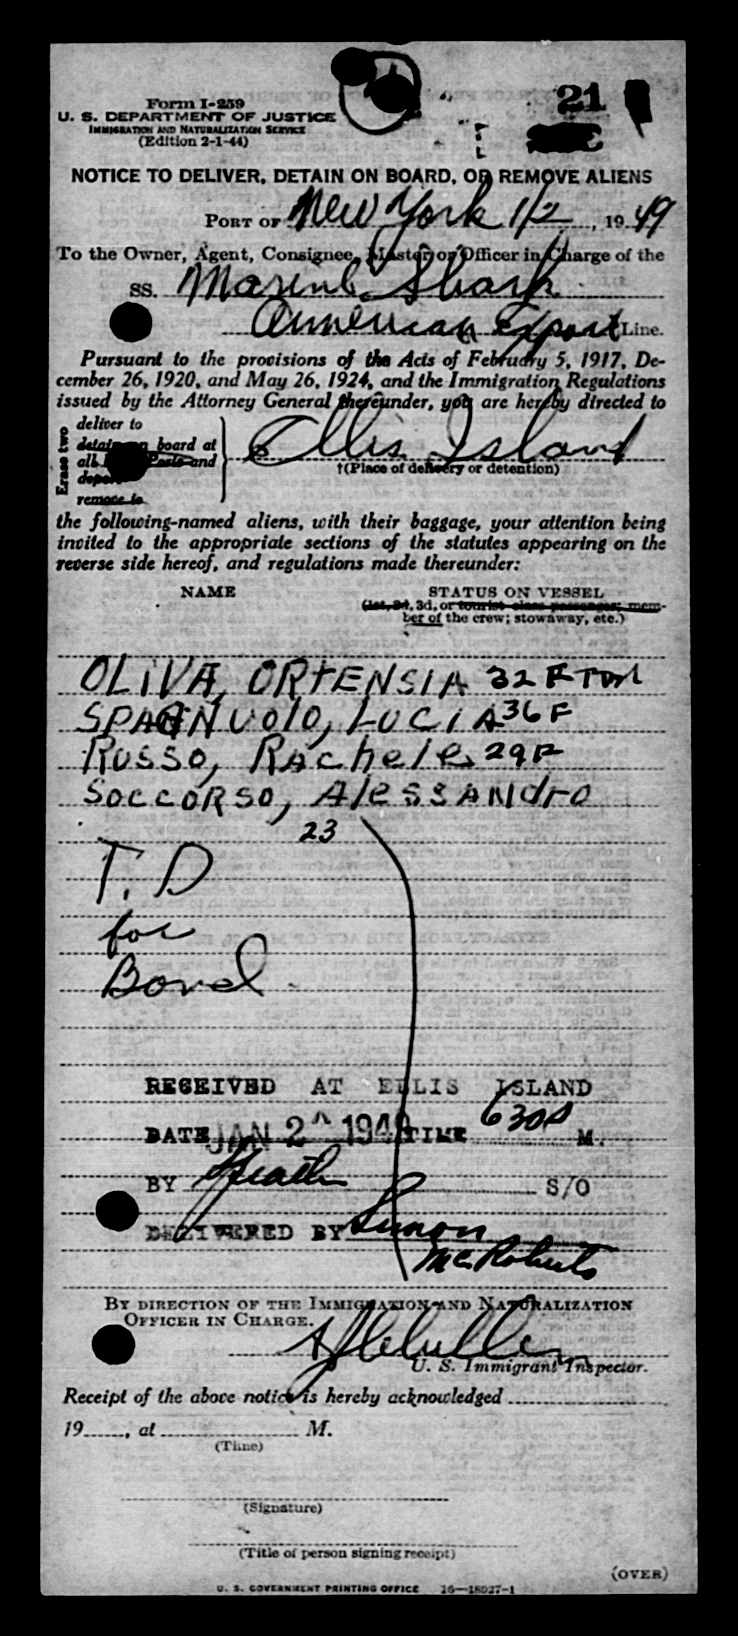 21
Form I-259
U. S. DEPARTMENT OF JUSTICE
IMMIGRATION AND NATURALIZATION SERVICE
(Edition 2-1-44)
NOTICE TO DELIVER, DETAIN ON BOARD, OR REMOVE ALIENS
PORT OF New York 1/2, 1949
To the Owner, Agent, Consignee, Master or Officer in Charge of the
SS. Marine Shark
American Export Line.
Pursuant to the provisions of the Acts of February 5, 1917, De-
cember 26, 1920, and May 26, 1924, and the Immigration Regulations
issued by the Attorney General thereunder, you are hereby directed to
Erase two
deliver to
detain on board at
all Ports and
remove to
Ellis Island
†(Place of delivery or detention)
the following-named aliens, with their baggage, your attention being
invited to the appropriate sections of the statutes appearing on the
reverse side hereof, and regulations made thereunder:
NAME STATUS ON VESSEL
(1st, 2d, 3d, or tourist class passenger; mem-
ber of the crew; stowaway, etc.)
OLIVA, ORTENSIA 32 F
SPAGNUOLO, LUCIA 36 F
RUSSO, RAchele 29 F
SOCCORSO, AlESSANdro
23
T. D
for
Bond
RECEIVED AT ELLIS ISLAND
DATE JAN 2 1949 TIME 630P M.
BY S/O
DELIVERED BY Simon
McRoberts
BY DIRECTION OF THE IMMIGRATION AND NATURALIZATION
OFFICER IN CHARGE.
U. S. Immigrant Inspector.
Receipt of the above notice is hereby acknowledged
19____, at ____ M.
(Time)
(Signature)
(Title of person signing receipt)
(OVER)
U. S. GOVERNMENT PRINTING OFFICE 16—18027-1